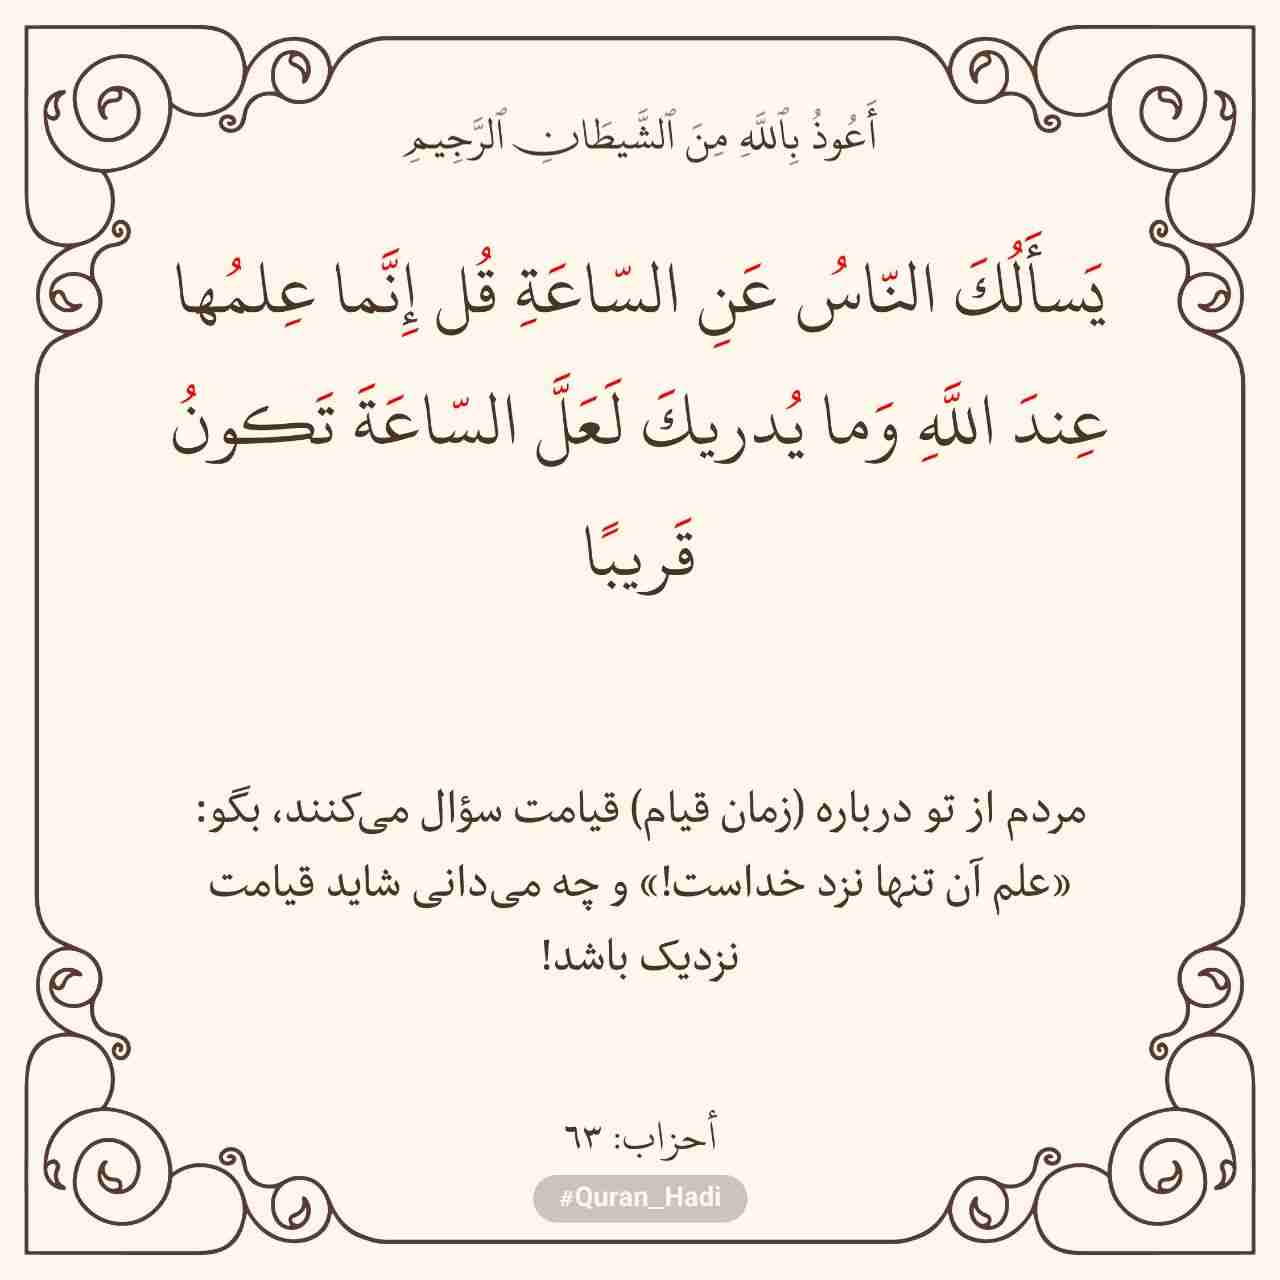 أَعُوذُ بِٱللَّهِ مِنَ ٱلشَّيطَانِ ٱلرَّجِيمِ
يَسأَلُكَ النّاسُ عَنِ السّاعَةِ قُل إِنَّما عِلمُها
عِندَ اللَّهِ وَما يُدريكَ لَعَلَّ السّاعَةَ تَكونُ
قَريبًا
مردم از تو درباره (زمان قیام) قیامت سؤال می‌کنند، بگو:
«علم آن تنها نزد خداست!» و چه می‌دانی شاید قیامت
نزدیک باشد!
أحزاب: ٦٣
#Quran_Hadi